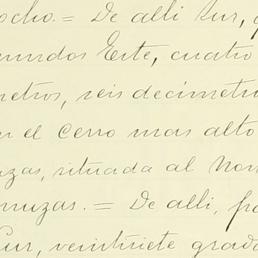 ocho. = De alli Sur,
undos Este, cuatro
metros, seis decimetro
el Cerro mas alto
uzas, situada al Nor
muzas. = De alli,
Sur, veintisiete grad